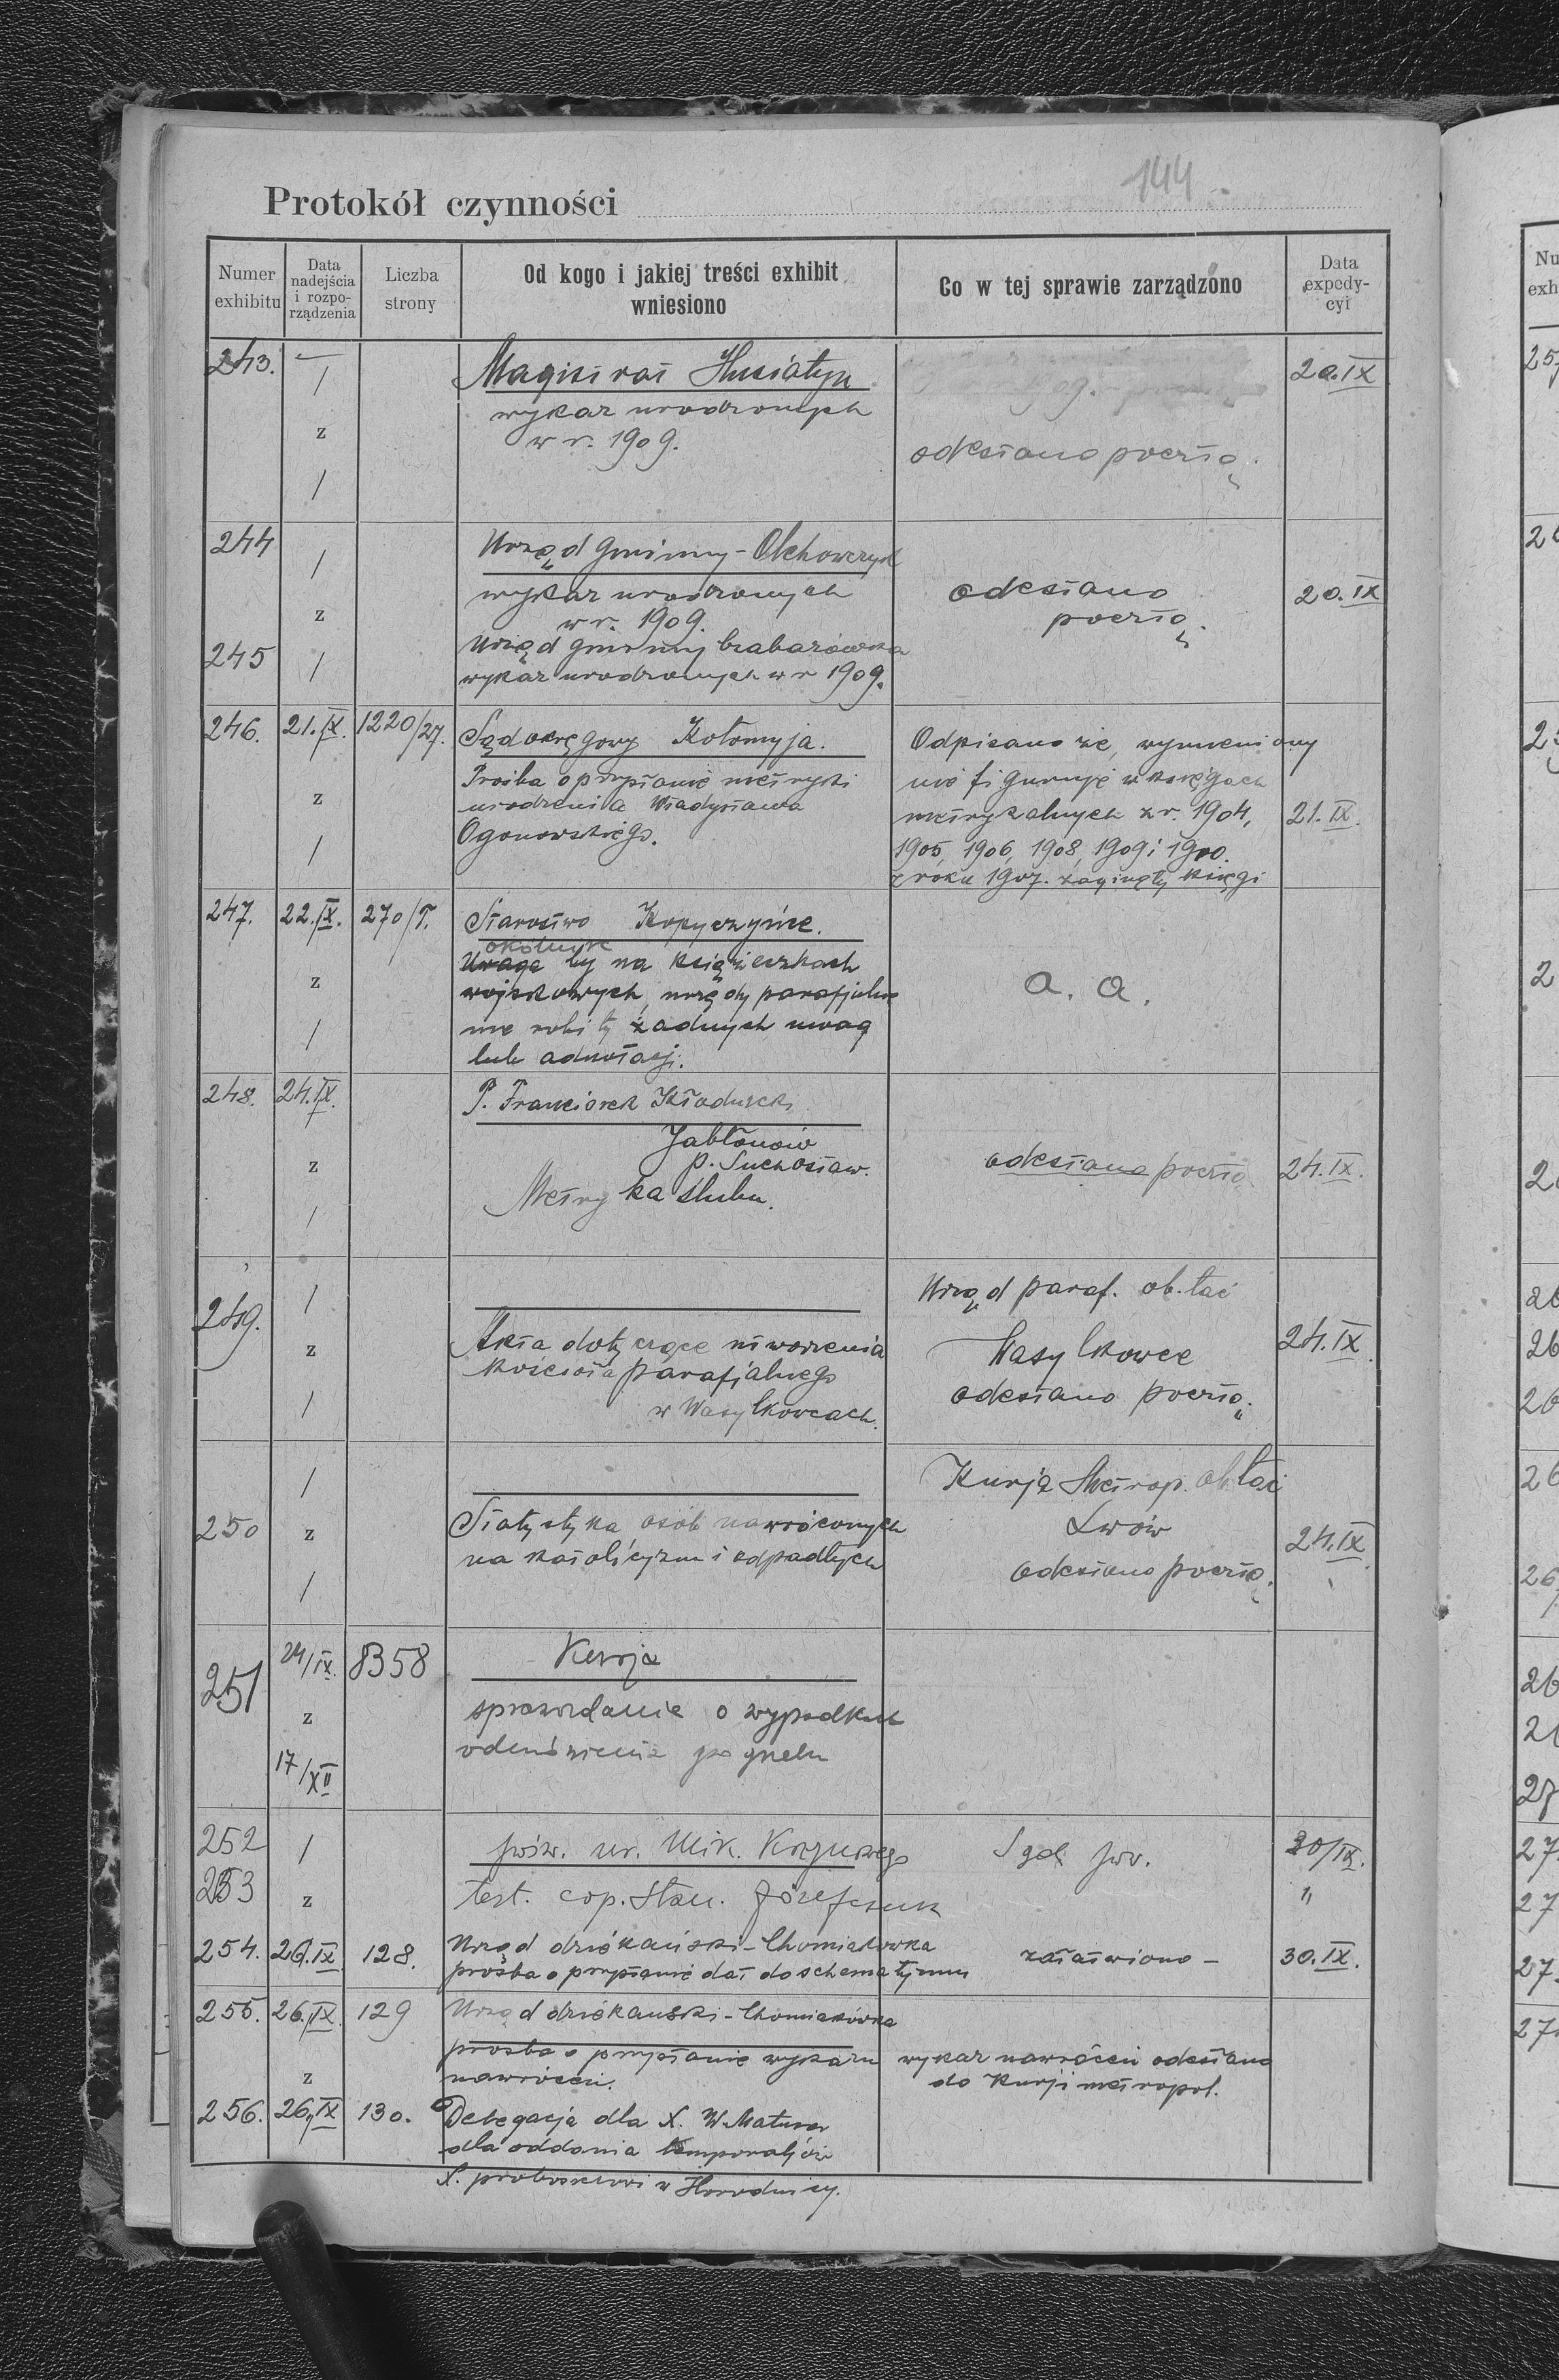 144
Protokół czynności
Numer exhibitu
Data nadejścia i rozporządzenia
Liczba strony
Od kogo i jakiej treści exhibit wniesiono
Co w tej sprawie zarządzono
Data expedycyi
243. — / z /
Magistrat Husiatyn
wykaz urodzonych
w r. 1909.
odesłano pocztą.
20.IX
244 / z
Urząd gminny - Olchowczyk
wykaz urodzonych
w r. 1909.
odesłano
pocztą.
20.IX
245 /
Urząd gminny
wykaz urodzonych w r 1909.
246. 21.IX. 1220/27. z /
Sąd okręgowy Kołomyja.
Prośba o przysłanie metryki
urodzenia Władysława
Ogonowskiego.
Odpisano że wymieniony
nie figuruje w księgach
metrykalnych z r. 1904,
1905, 1906, 1908, 1909 i 1910.
z roku 1907. zaginęły księgi
21.IX.
247. 22.IX. 270/T. z /
Starostwo Kopyczyńce.
okólnik
Uwaga by na książeczkach
wojskowych, urzędy parafjalne
nie robiły żadnych uwag
lub adnotacji.
a. a.
248. 24.IX. z /
P. Franciszek
Jabłonów
p. Suchostaw.
Metryka ślubu.
odesłano pocztą
24.IX.
249. / z /
Akta dotyczące utworzenia
kościoła parafjalnego
w Wasylkowcach.
Urząd paraf. ob. łać
Wasylkowce
odesłano pocztą.
24.IX.
250 / z /
Statystyka osób nawróconych
na katolicyzm i odpadłych
Kurja Metrop. ob łać
Lwów
odesłano pocztą.
24.IX.
251 24/IX. 8358 z 17/XII
Kurja
sprawozdanie o wypadkach
odmówienia pogrzebu
252 /
ur. Mik.
Sąd
30/IX.
253 z
test. cop. Stan. Józefczuk
"
254. 26.IX 128.
Urząd dziekański - Chomiakówka
prośba o przysłanie dat do schematyzmu
załatwiono -
30.IX.
255. 26.IX. 129 z
Urząd dziekański - Chomiakówka
prośba o przysłanie wykazu
nawróceń.
wykaz nawróceń odesłano
do Kurji metropol.
256. 26.IX 130.
Delegacja dla X. W.
dla oddania temporaljów
X. proboszczowi w Horodnicy.